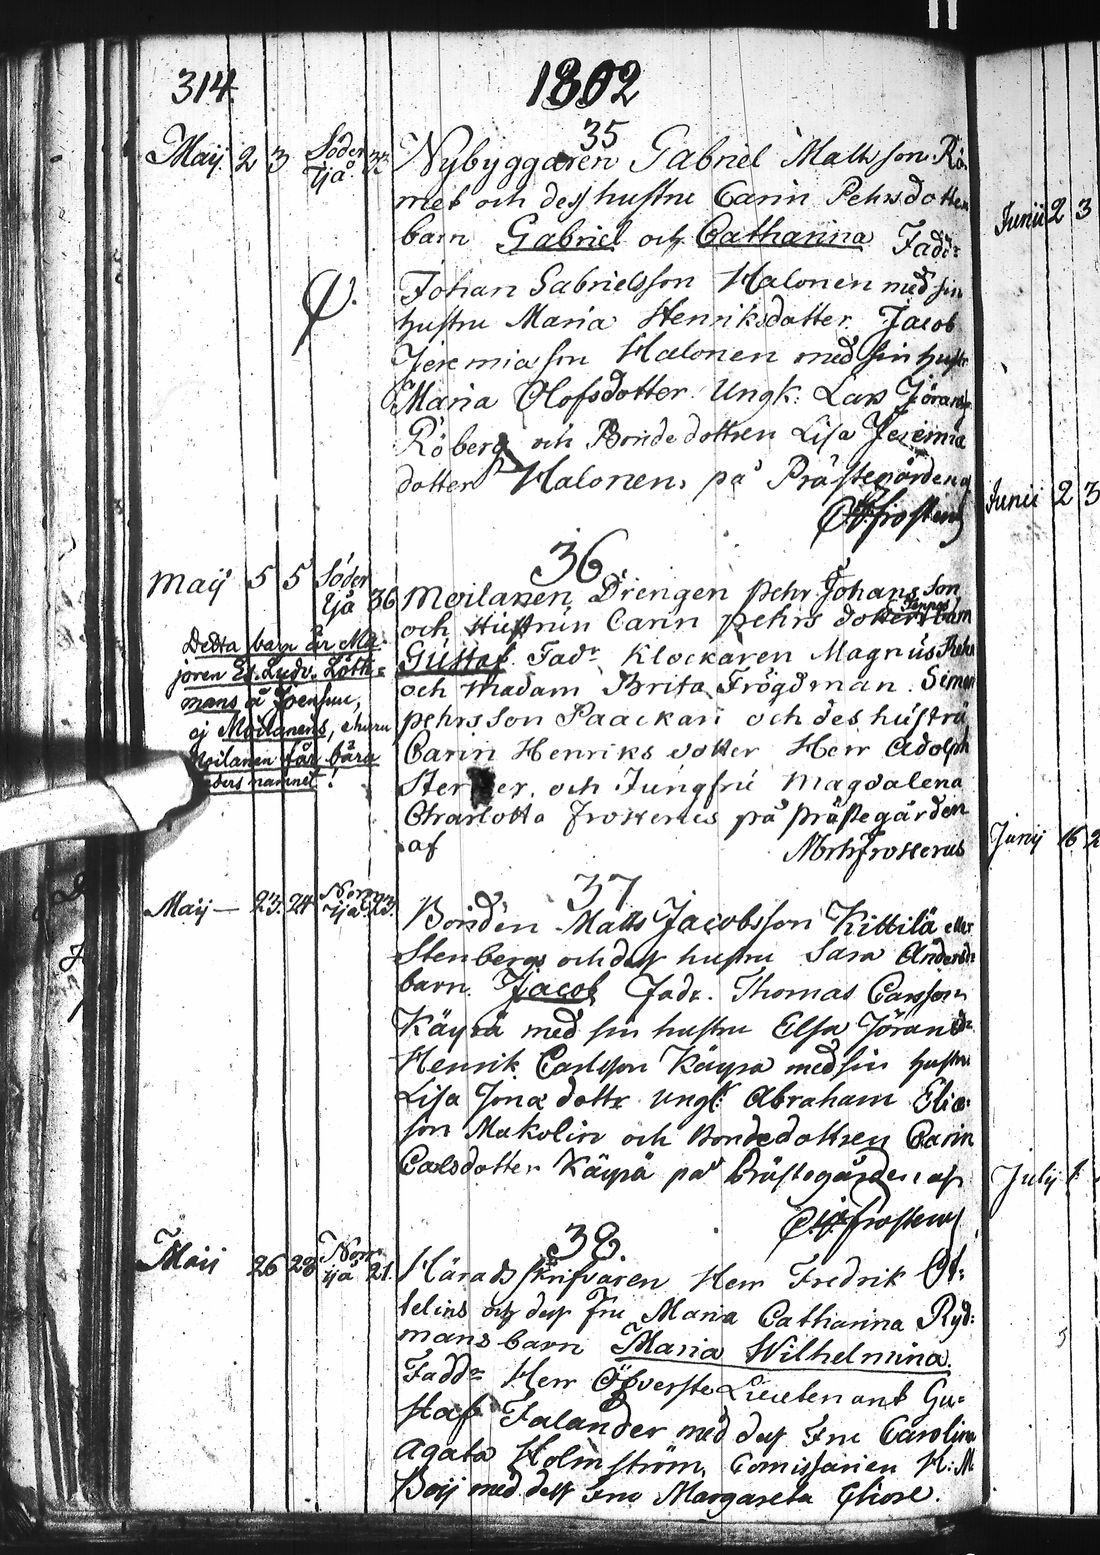 314.
1802
35
Maij 2 3 Söder
sjä 33. Nybyggaren Gabriel Mattsson Rö-
met och dess hustru Carin Pehrsdotters
barn Gabriel och Catharina Fadr:
Johan Gabrielsson Halonen med sin
hustru Maria Henriksdotter. Jacob
Jeremiasson Halonen med sin hustr
Maria Olofsdotter Ungk: Lars Jörans
Röberg och Bondedottren Lisa Jeremia
dotter Halonen, på Prästegården af
Frosterus
36
Maij 5 5 Söder
sjä 36 Moilanen Drengen pehr Johans son
och Hustrun Carin pehrs dotters barn
Gustaf Fadr Klockaren Magnus
och Madam Brita Frögdman. Simon
pehrsson Paackari och des hustru
Carin Henriks dotter Herr Adolph
och Jungfru Magdalena
Charlotta Frosterus på prästegården
af Frosterus
Detta barn är Ma-
joren Ludv. Löth-
mans å
ej Moilanens, ehuru
Moilanen får bära
faders namnet!
37
Maij 23. 24 Norr
sjä 23. Bonden Matts Jacobsson Kittilä eller
Stenbergs och dess hustru Sara Andersdr
barn Jacob Fadr. Thomas Carlsson
Käyrä med sin hustru Elsa Jöransdr
Henrik Carlsson Käyrä med sin hustru
Lisa Jonæ dottr Ungk: Abraham Eliæ:
son Makolin och Bondedottren Carin
Carlsdotter Käyrä på Prästegården af
Frosterus
38.
Maij 26 28 Norr
sjä 21. Häradsskrifvaren Herr Fredrik Ot-
telins och dess Fru Maria Catharina Ryd:
mans barn Maria Wilhelmina.
Faddr Herr Öfverste Lieutenant Gu-
staf Falander med dess Fru Carolina
Agata Holmström, Comissarien H: M
Boij med dess Fru Margareta
Junii 2 3
Junii 2 3
Junij 16 2
Julij 1